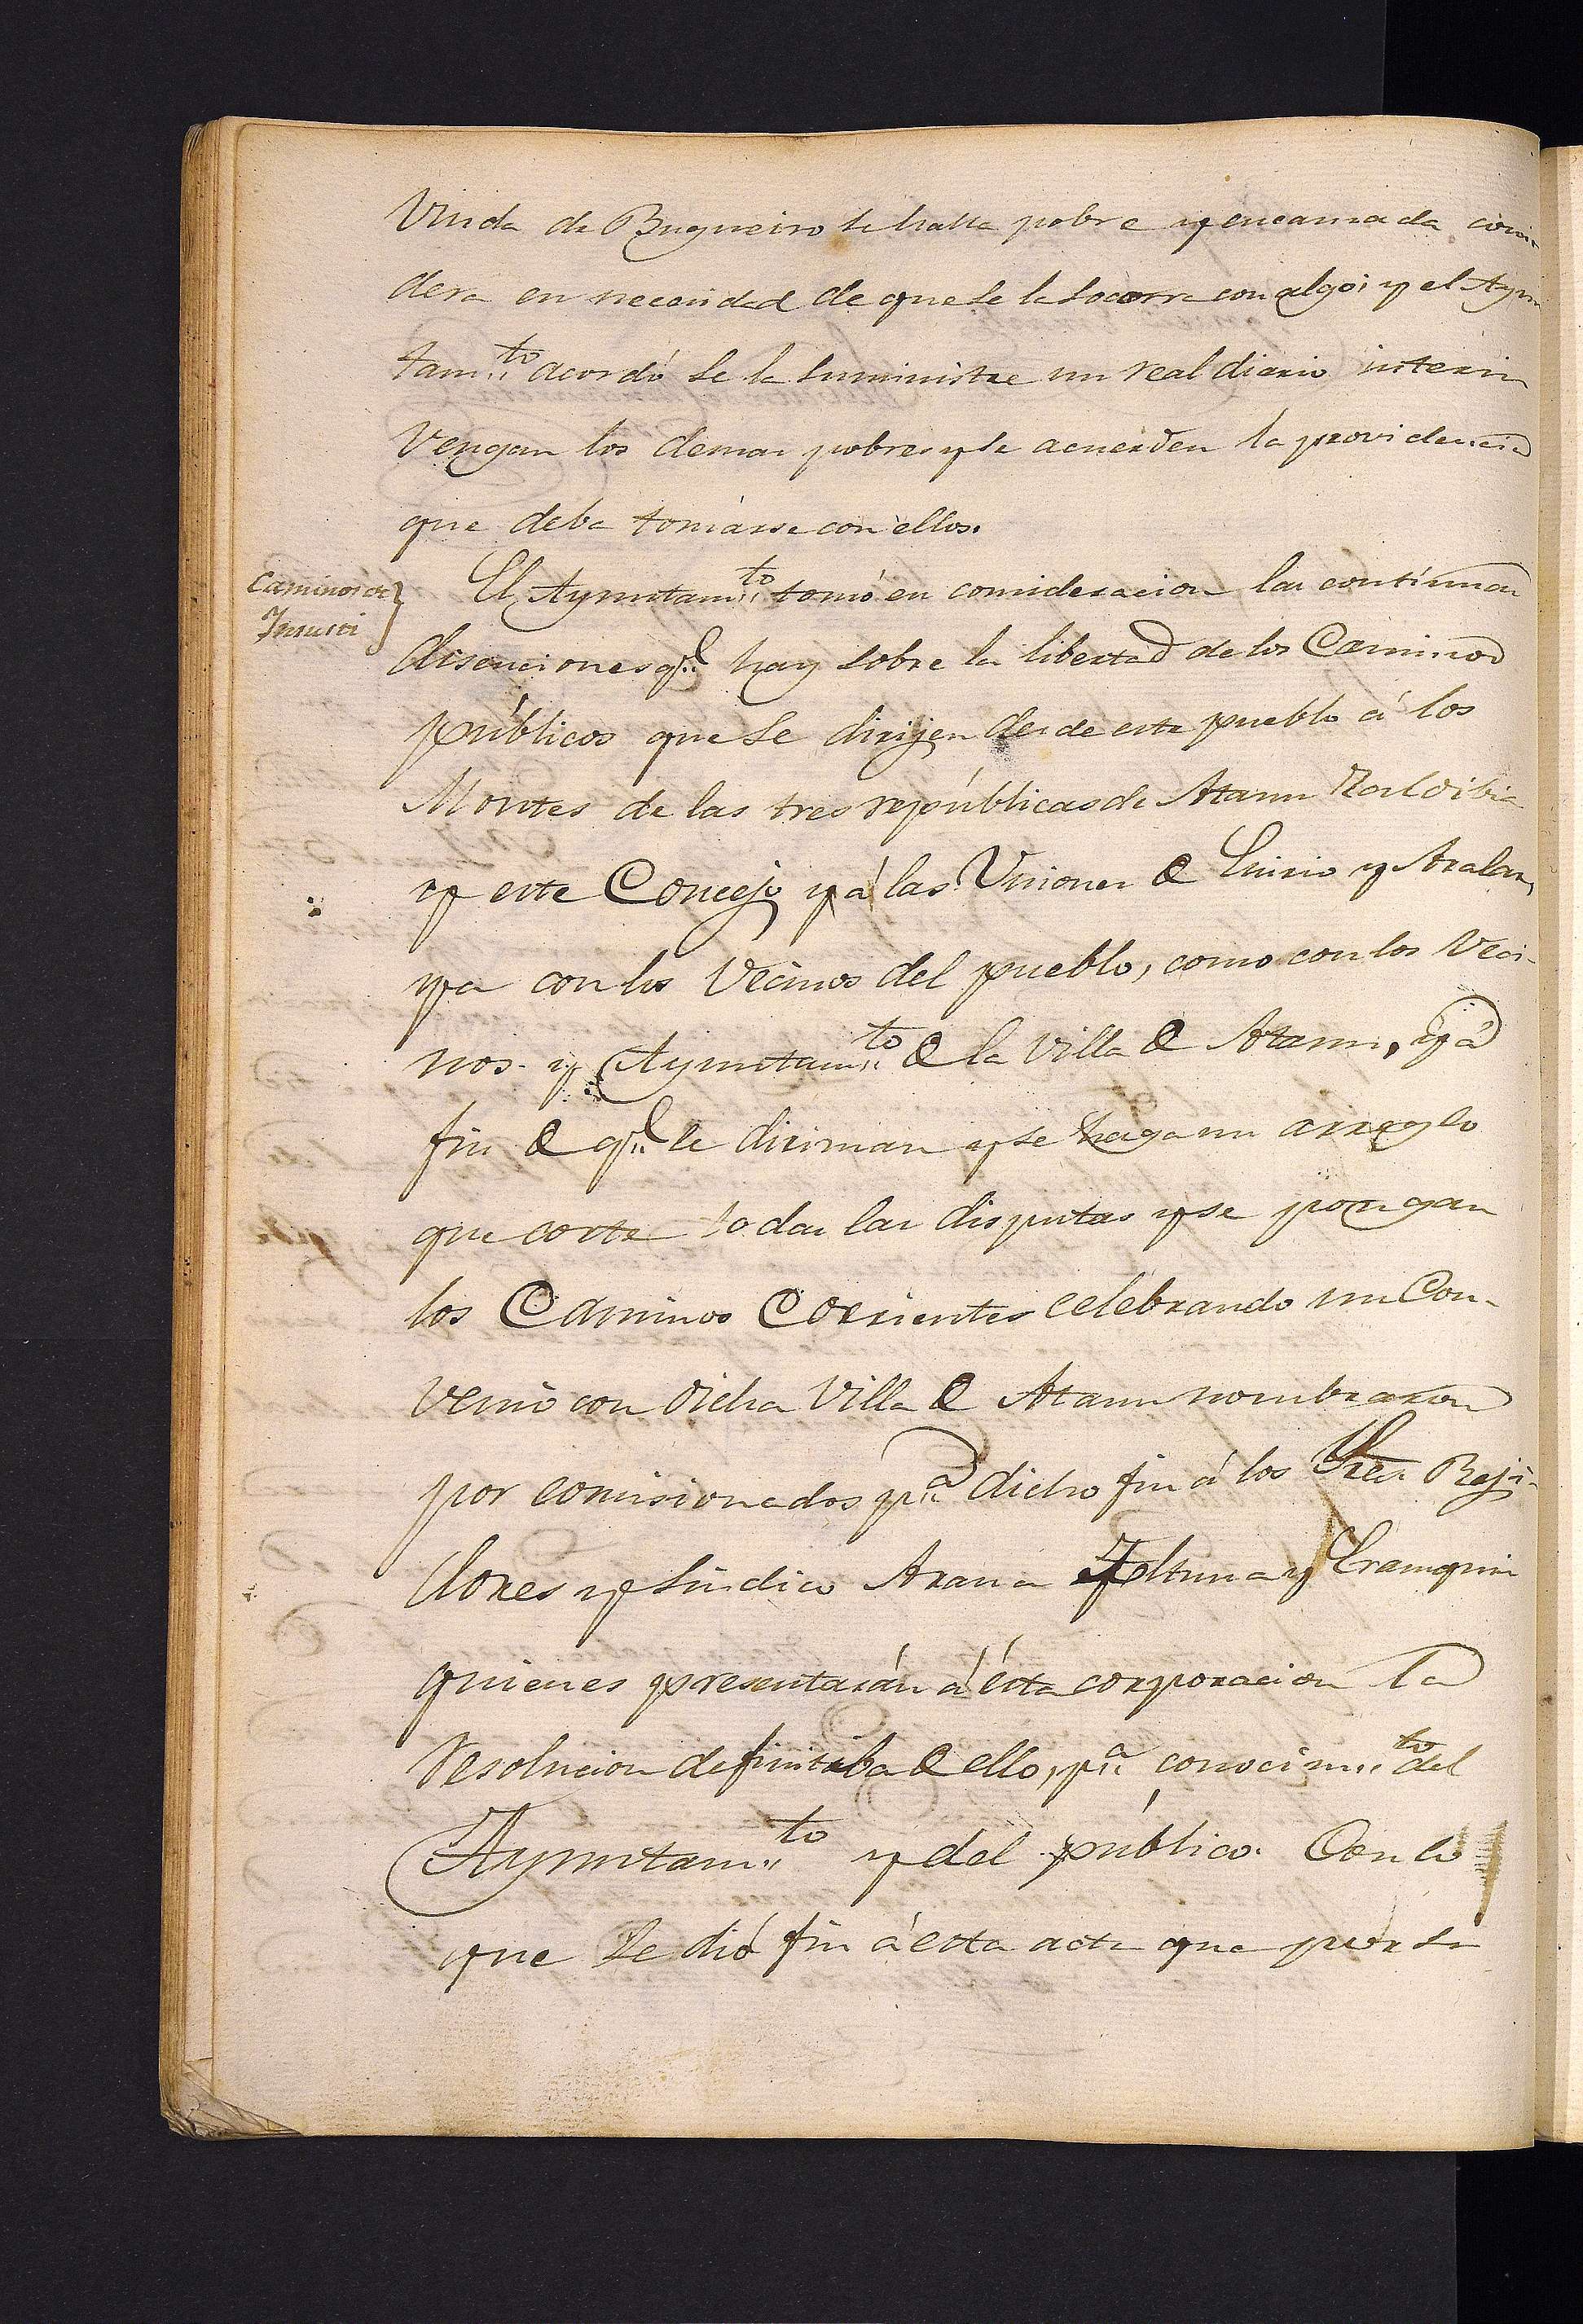 Viuda de Bugueiro se halla pobre y encamada consi-
dera en necesidad de que se la socorra con algo; y el Ayun
tam.to acordó se la suministre un real diario interin
vengan los demas pobres y se acuerden la providencia
que deba tomárse con ellos.
Caminos de
Insusti
El Ayuntam.to tomó en consideracion las continuas
disenciones q.e hay sobre la libertad de los Caminos
públicos que se dirijen desde este pueblo á los
Montes de las tres repúblicas de Ataun Zaldibia
y este Concejo y á las Uniones de Enirio y Aralar,
ya con los Vecinos del pueblo, como con los Veci-
nos y Ayuntam.to de la Villa de Ataun, y á
fin de q.e se diriman y se haga un arreglo
que corte todas las disputas y se pongan
los Caminos Corrientes celebrando un Con-
venio con dicha Villa de Ataun nombraron
por comisionados p.a dicho fin á los Sres Reji-
dores y Sindico Arana y Erauzquin
quienes presentarán á ésta corporacion la
resolucion definitiba de ello, p.a conocim.to del
Ayuntam.to y del público. Con lo
que se dió fin á esta acta que por se